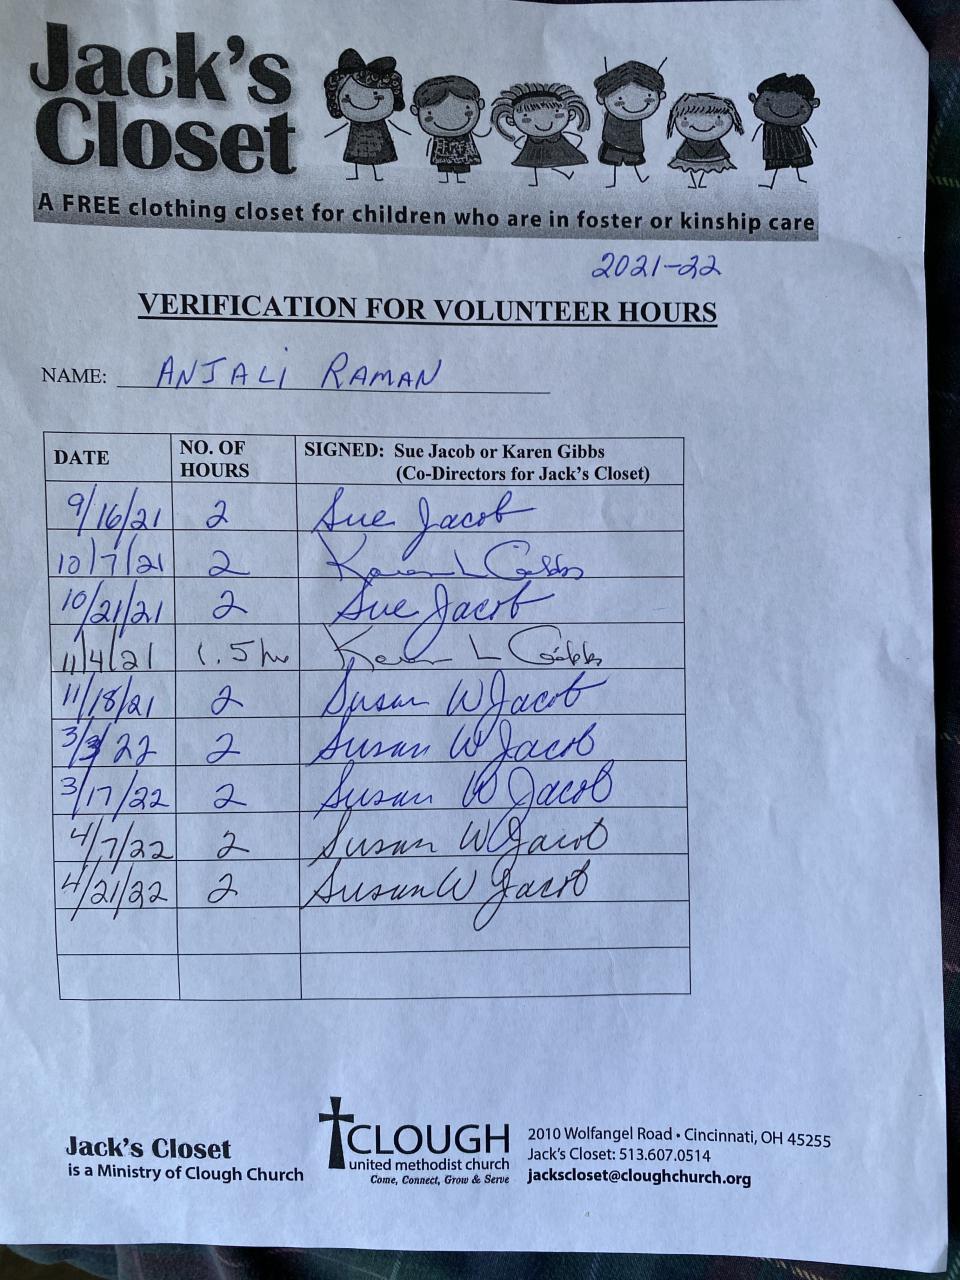 Jack's
Closet
A FREE clothing closet for children who are in foster or kinship care
2021-22
VERIFICATION FOR VOLUNTEER HOURS
NAME: ANJALI RAMAN
DATE NO. OF HOURS SIGNED: Sue Jacob or Karen Gibbs (Co-Directors for Jack's Closet)
9/16/21 2 Sue Jacob
10/7/21 2 Karen L Gibbs
10/21/21 2 Sue Jacob
11/4/21 1.5 hr Karen L Gibbs
11/18/21 2 Susan W Jacob
3/3/22 2 Susan W Jacob
3/17/22 2 Susan W Jacob
4/7/22 2 Susan W Jacob
4/21/22 2 Susan W Jacob
Jack's Closet
is a Ministry of Clough Church
CLOUGH
united methodist church
Come, Connect, Grow & Serve
2010 Wolfangel Road • Cincinnati, OH 45255
Jack's Closet: 513.607.0514
jackscloset@cloughchurch.org